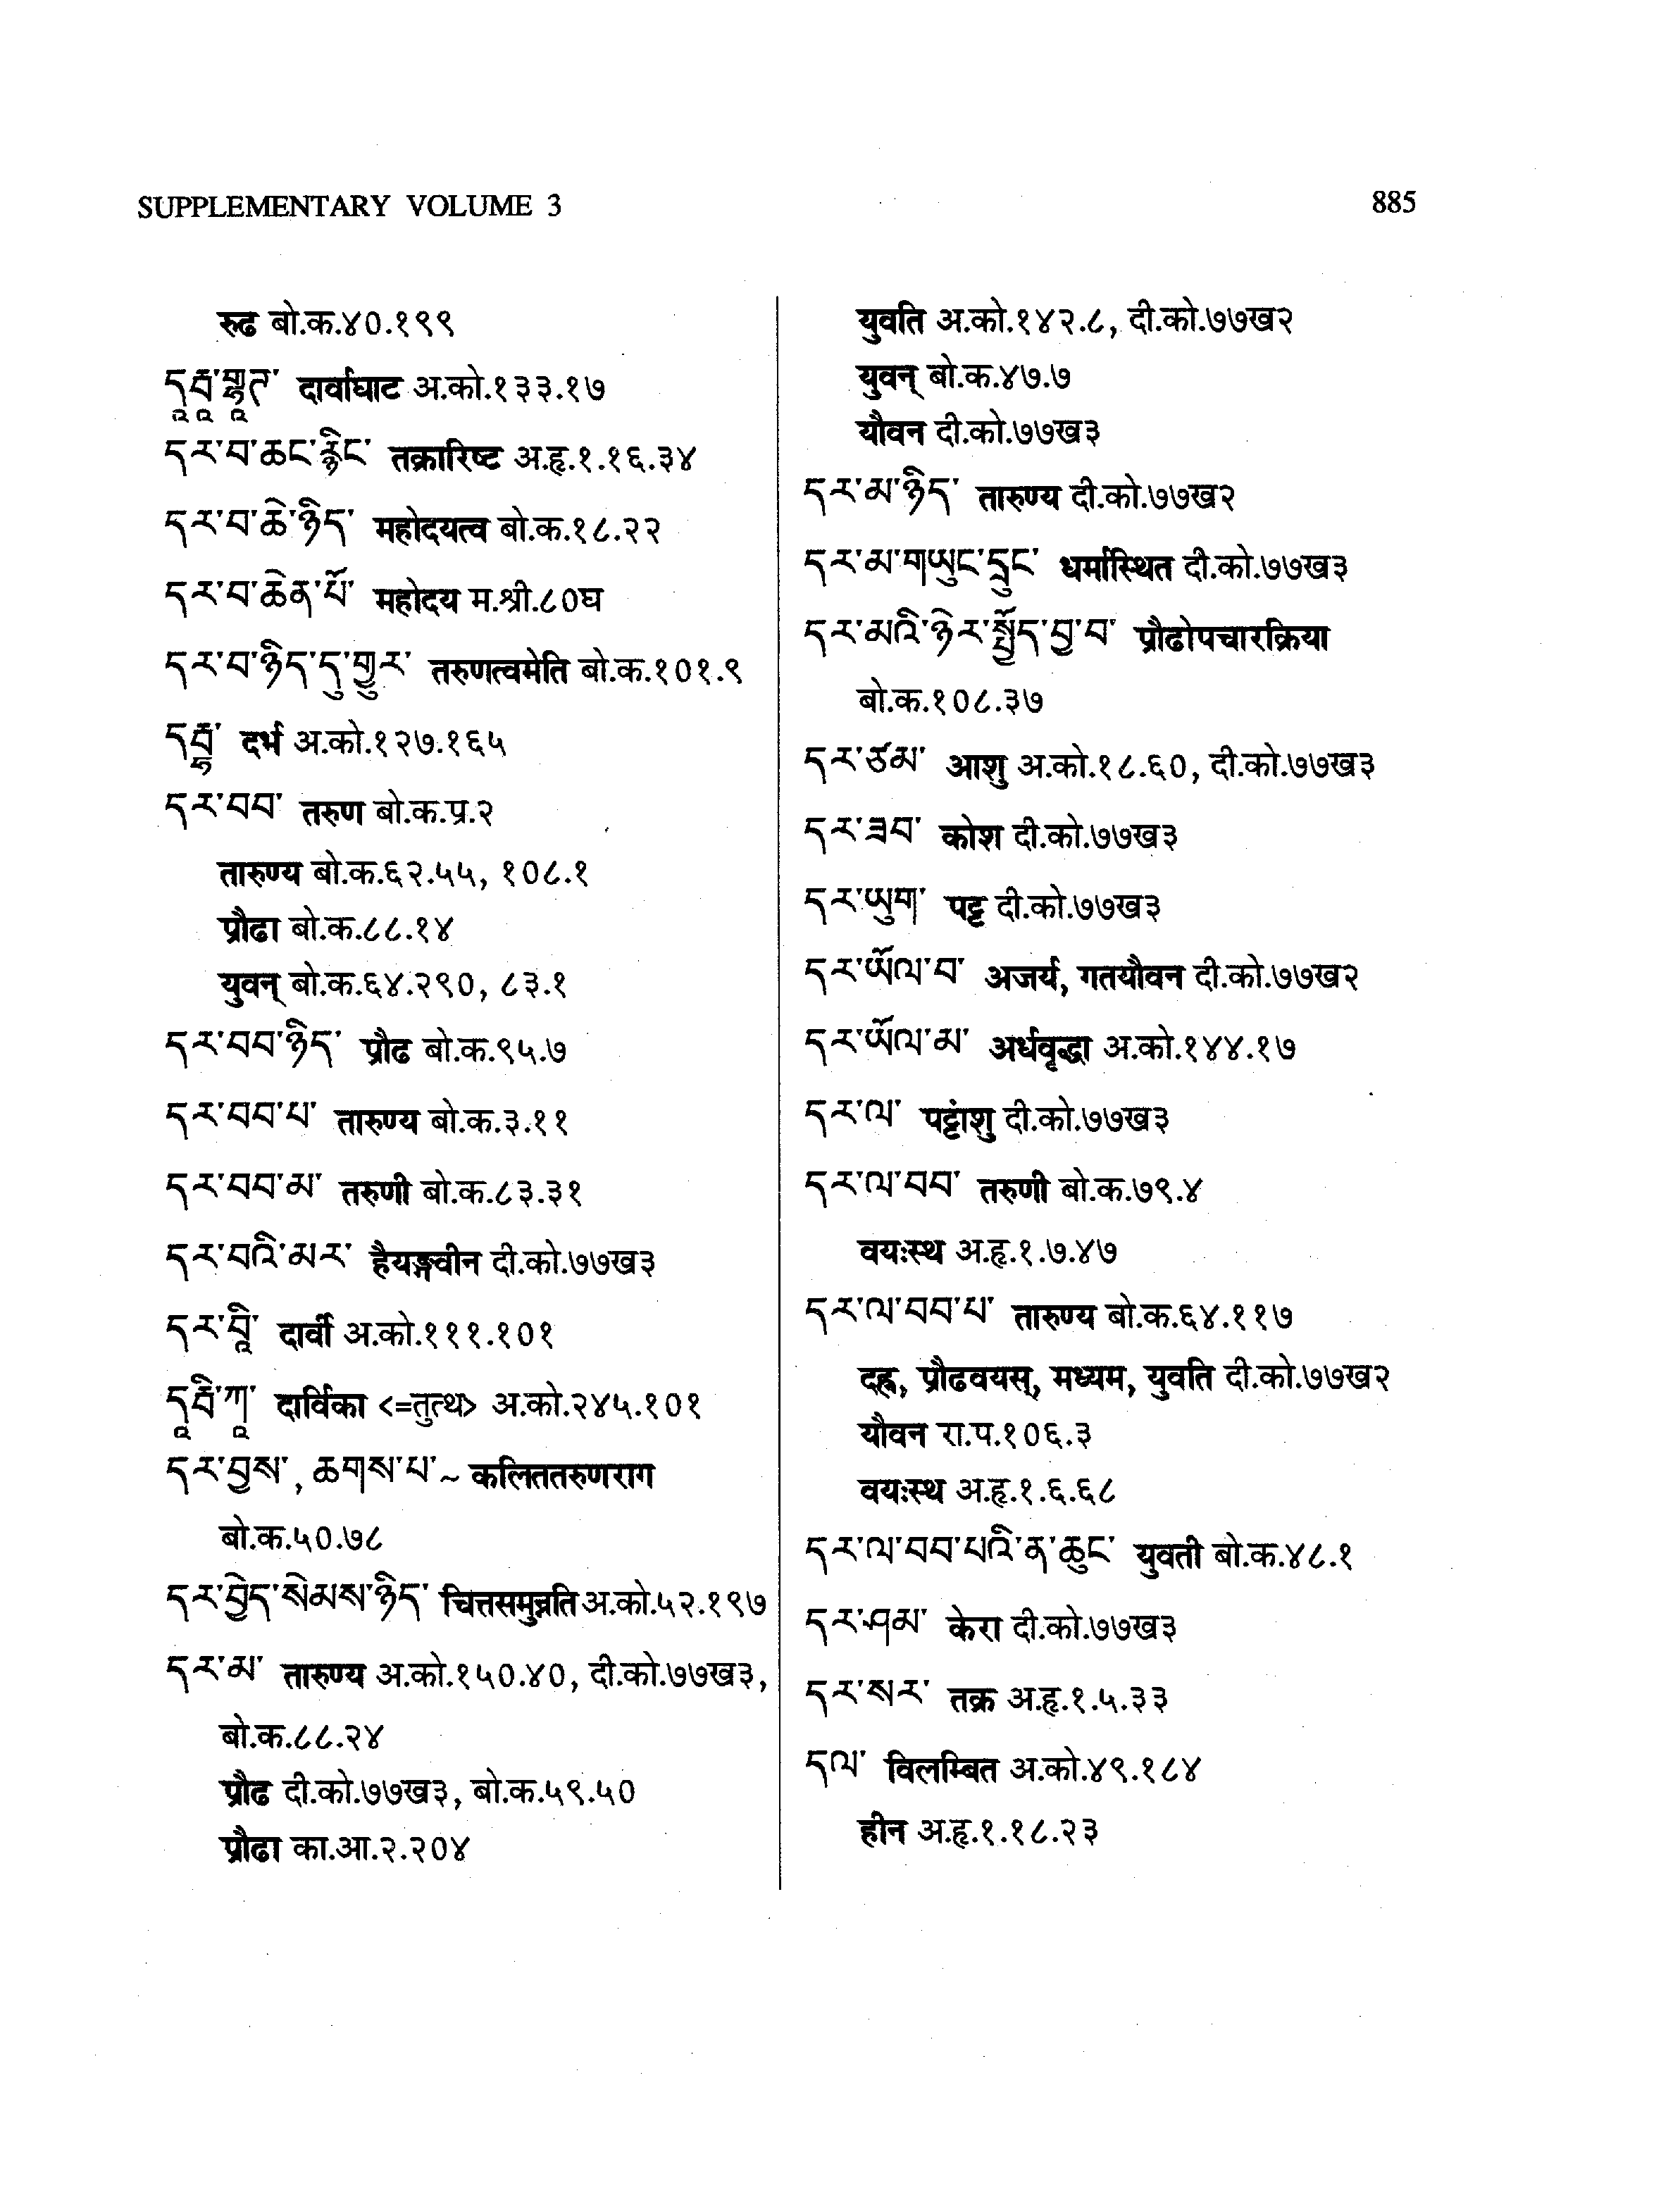 SUPPLEMENTARY VOLUME 3
885
रुढ बो.क.४०.१९९
दार्वाघाट अ.को.१३३.१७
དར་བ་ཆང་རྙིང་ तक्रारिष्ट अ.हृ.१.१६.३४
དར་བ་ཆེ་ཉིད་ महोदयत्व बो.क.१८.२२
དར་བ་ཆེན་པོ་ महोदय म.श्री.८०घ
དར་བ་ཉིད་དུ་གྱུར་ तरुणत्वमेति बो.क.१०१.९
दर्भ अ.को.१२७.१६५
དར་བབ་ तरुण बो.क.प्र.२
तारुण्य बो.क.६२.५५, १०८.१
प्रौढा बो.क.८८.१४
युवन् बो.क.६४.२९०, ८३.१
དར་བབ་ཉིད་ प्रौढ बो.क.९५.७
དར་བབ་པ་ तारुण्य बो.क.३.११
དར་བབ་མ་ तरुणी बो.क.८३.३१
དར་བའི་མར་ हैयङ्गवीन दी.को.७७ख३
དར་བཱི་ दार्वी अ.को.१११.१०१
दार्विका <=तुत्थ> अ.को.२४५.१०१
དར་བྱས་, ཆགས་པ་~ कलिततरुणराग
बो.क.५०.७८
དར་བྱེད་སེམས་ཉིད་ चित्तसमुन्नति अ.को.५२.१९७
དར་མ་ तारुण्य अ.को.१५०.४०, दी.को.७७ख३,
बो.क.८८.२४
प्रौढ दी.को.७७ख३, बो.क.५९.५०
प्रौढा का.आ.२.२०४
युवति अ.को.१४२.८, दी.को.७७ख२
युवन् बो.क.४७.७
यौवन दी.को.७७ख३
དར་མ་ཉིད་ तारुण्य दी.को.७७ख२
དར་མ་གཡུང་དྲུང་ धर्मास्थित दी.को.७७ख३
དར་མའི་ཉེར་སྤྱོད་བྱ་བ་ प्रौढोपचारक्रिया
बो.क.१०८.३७
དར་ཙམ་ आशु अ.को.१८.६०, दी.को.७७ख३
དར་ཟབ་ कोश दी.को.७७ख३
དར་ཡུག་ पट्ट दी.को.७७ख३
དར་ཡོལ་བ་ अजर्य, गतयौवन दी.को.७७ख२
དར་ཡོལ་མ་ अर्धवृद्धा अ.को.१४४.१७
དར་ལ་ पट्टांशु दी.को.७७ख३
དར་ལ་བབ་ तरुणी बो.क.७९.४
वयःस्थ अ.हृ.१.७.४७
དར་ལ་བབ་པ་ तारुण्य बो.क.६४.११७
दह्र, प्रौढवयस्, मध्यम, युवति दी.को.७७ख२
यौवन रा.प.१०६.३
वयःस्थ अ.हृ.१.६.६८
དར་ལ་བབ་པའི་ན་ཆུང་ युवती बो.क.४८.१
དར་ཤམ་ केरा दी.को.७७ख३
དར་སར་ तक्र अ.हृ.१.५.३३
དལ་ विलम्बित अ.को.४९.१८४
हीन अ.हृ.१.१८.२३